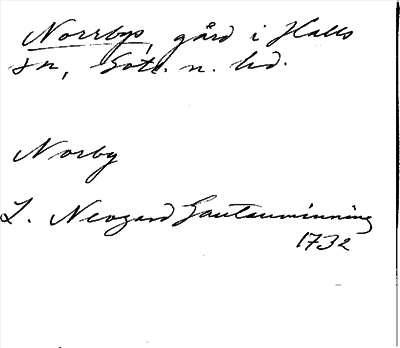 Norrbys, gård i Halls
sn, Gotl. n. hd.
Norby
L. Neogard Gautauminning
1732